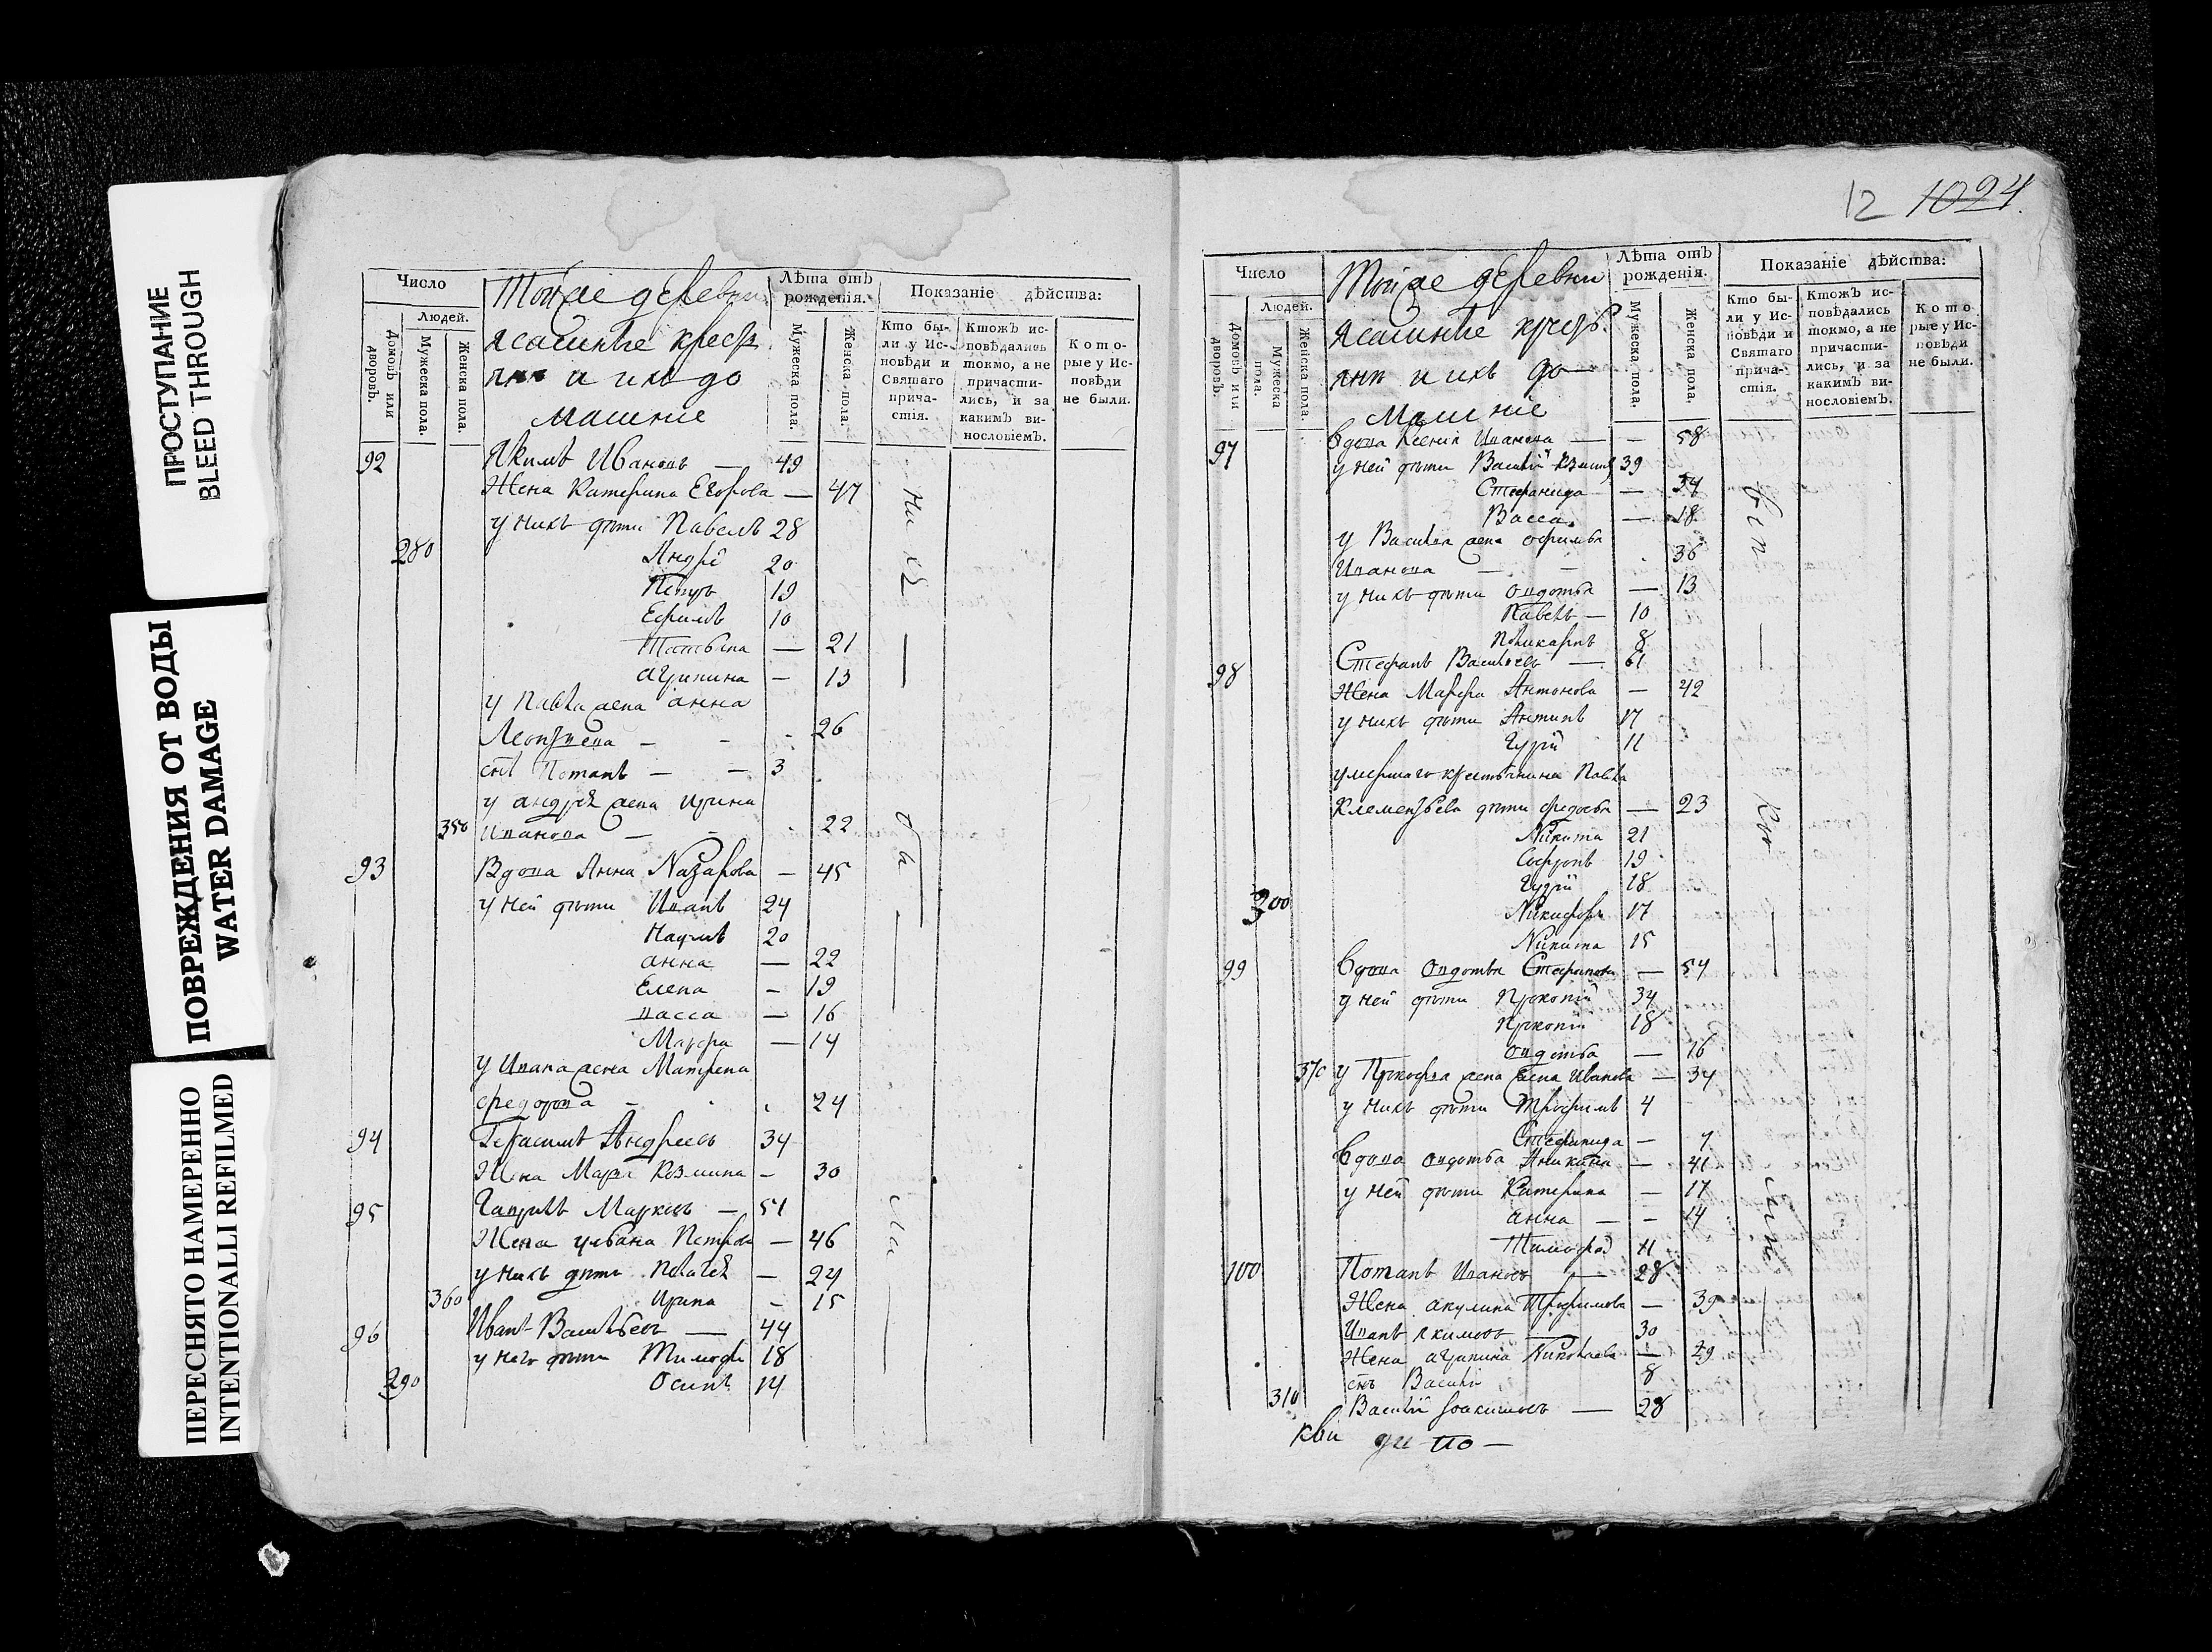 ПРОСТУПАНИЕ
BLEED THROUGH
ПОВРЕЖДЕНИЯ ОТ ВОДЫ
WATER DAMAGE
ПЕРЕСНЯТО НАМЕРЕННО
INTENTIONALLI REFILMED
Число
Людей.
Домовъ или дворовъ.
Мужеска пола.
Женска пола.
Тойже деревни
ясашные крестья
яне и ихъ до
машние
Лѣта отъ рожденія.
Мужеска пола.
Женска пола.
Показаніе дѣйства:
Кто были у Исповѣди и Святаго причастія.
Ктожъ исповѣдались токмо, а не причастились, и за какимъ винословіемъ.
Которые у Исповѣди не были.
92 Якимъ Ивановъ — 49
Жена Катерина Егорова — 47
у нихъ дѣти Павелъ 28
280 Андрей 20
Петръ 19
Ефимъ 10
Татьяна — 21
Агрипина — 13
у Павла жена Анна
Леонтьева — 26
сынъ Потапъ — 3
у Андрея жена Ирина
350 Иванова — 22
93 Вдова Анна Назарова — 45
у ней дѣти Иванъ 24
Наумъ 20
Анна — 22
Елена — 19
Васса — 16
Марфа — 14
у Ивана жена Матрена
Федорова — 24
94 Герасимъ Андреевъ 34
Жена Марья Козмина — 30
95 Гаврилъ Марковъ — 51
Жена Ульяна Петрова — 46
у нихъ дѣти Пелагея — 24
360 Ирина — 15
96 Иванъ Васильевъ — 44
у него дѣти Тимофей 18
290 Осипъ 14
12 1024.
Число
Людей.
Домовъ или дворовъ.
Мужеска пола.
Женска пола.
Тойже деревни
ясашные кресть
яне и ихъ до
машние
Лѣта отъ рожденія.
Мужеска пола.
Женска пола.
Показаніе дѣйства:
Кто были у Исповѣди и Святаго причастія.
Ктожъ исповѣдались токмо, а не причастились, и за какимъ винословіемъ.
Которые у Исповѣди не были.
97 Вдова Ксения Иванова — 58
у ней дѣти Василий 39
Стефанида — 34
Васса — 18
у Василья жена Софья
Иванова — 36
у нихъ дѣти Овдотья — 13
Павелъ — 10
Поликарпъ 8
98 Стефанъ Васильевъ — 61
Жена Марфа Антонова — 42
у нихъ дѣти Антипъ 17
Гурій 11
умершаго крестьянина Павла
Клементьева дѣти Федосья — 23
Никита 21
Софронъ 19
Гурій 18
300 Никифоръ 17
Никита 15
99 Вдова Овдотья Стефанова — 54
у ней дѣти Прокопій 34
Прокопій 18
Овдотья — 16
370 у Прокофья жена Елена Иванова — 34
у нихъ дѣти Трофимъ 4
Стефанида — 7
Вдова Овдотья Аникина — 41
у ней дѣти Катерина — 17
Анна — 14
Тимофей 11
100 Потапъ Ивановъ — 28
Жена Акулина Трофимова — 39
Иванъ Якимовъ 30
Жена Агрипина Николаева — 29
сынъ Василий 8
310 Василий Иоакимовъ — 28